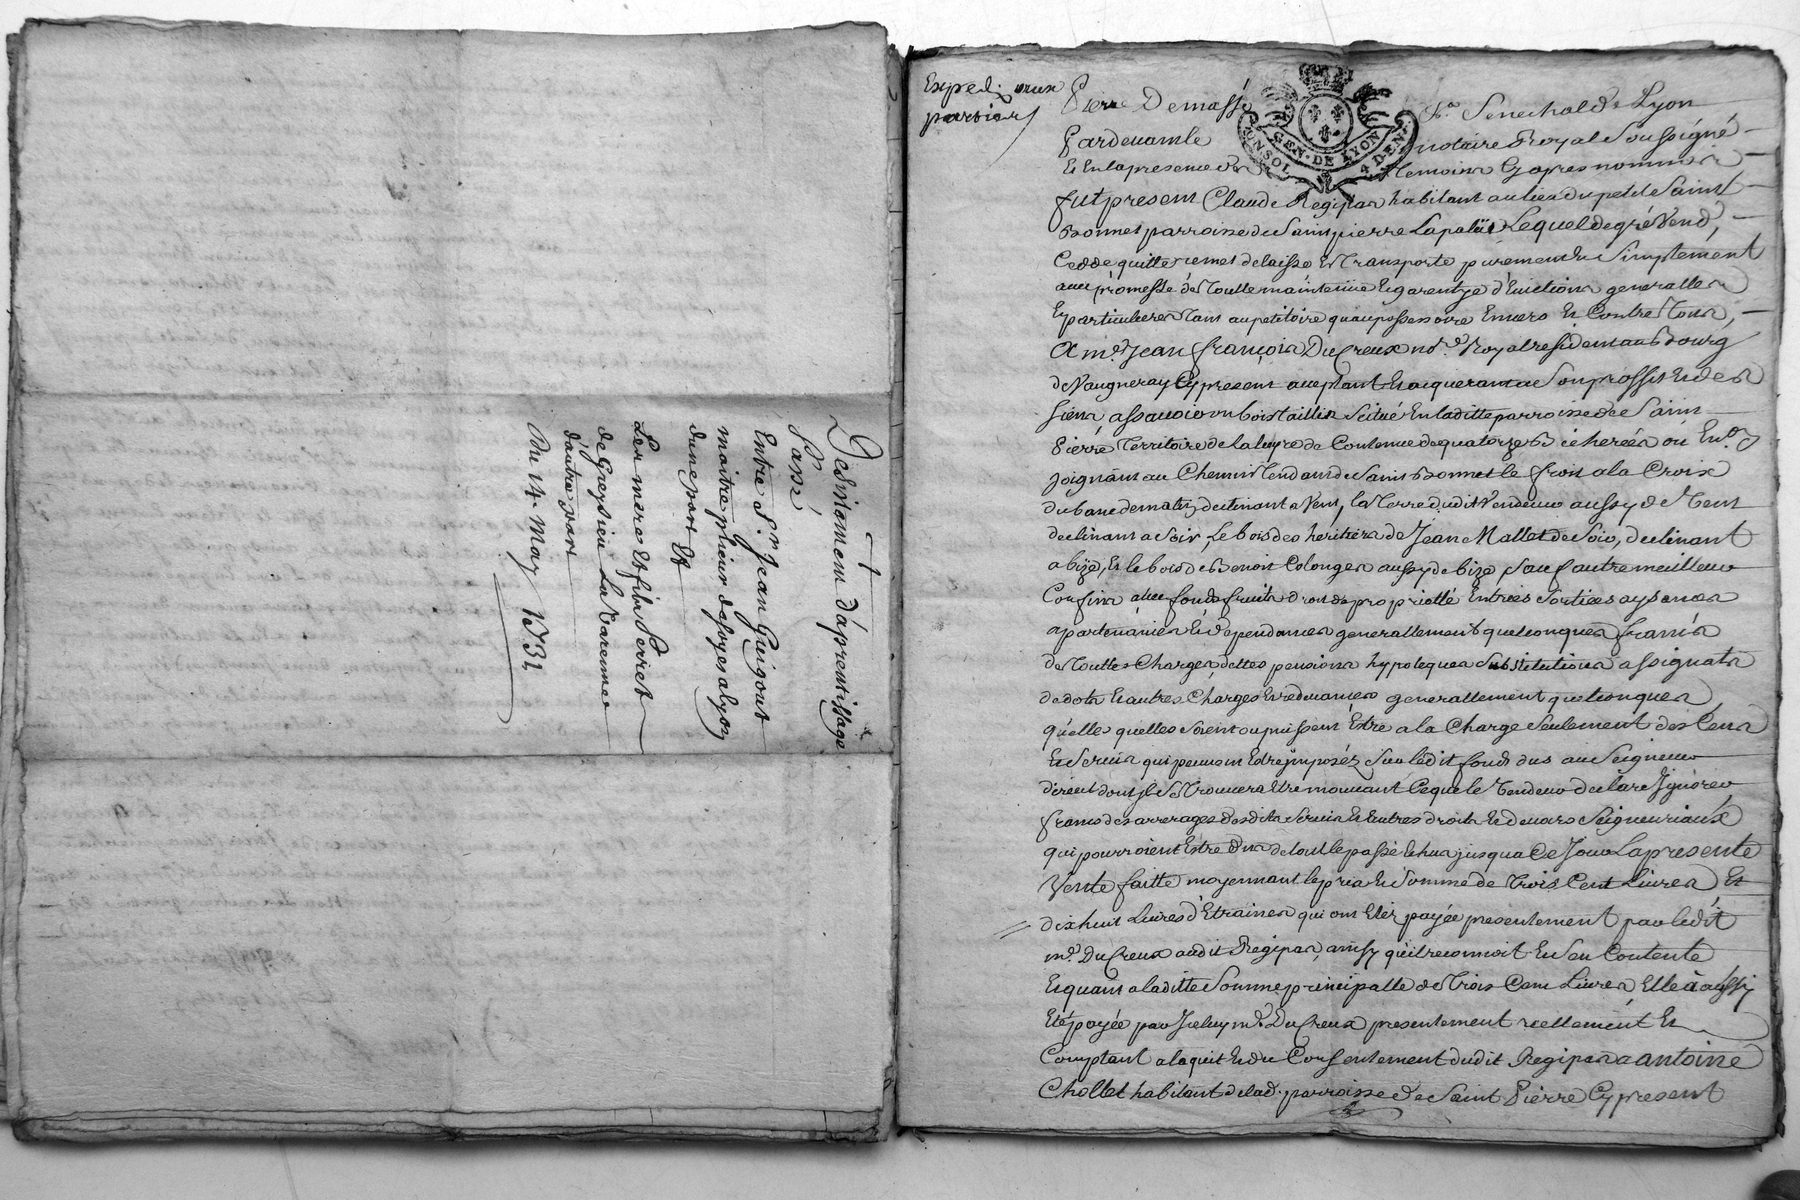 Desistement d'aprentissage
Passé
Entre Sr. Jean Guigout
maitre plieur de soyes a lyon
dune part Et
Les mere et fils Perret
de Greysieu La Varenne
d'autre part
Du 14. May 1731
Exped. aux
parties
Pierre Demassé
Pardevant le
Et En la presence des
Sen. Senechal de Lyon
notaire Royal Soussigné
temoins Cy apres nommés
GEN. DE LYON
4 DEN.
fut present Claude Regipas habitant au lieu du petit Saint
Bonnet parroisse de Saint pierre Lapalüs Lequel de gré Vend,
Cedde quitte remet delaisse Et Transporte purement et Simplement
avec promesse de Toutte maintenüe Et garentye d'Eviction generalles
Et particulieres tant au petitoire quau possessoire Envers Et Contre Tous,
A me. Jean françois Du Creux nore. Royal resident au Bourg
de Vaugneray Cy present acceptant Et acquerant a Son proffit Et des
Siens assavoir un bois taillis Scitué En laditte parroisse de Saint
Pierre Territoire de la de Contenue de quatorze bicherées ou En.
joignant au Chemin Tendant de Saint Bonnet le froit a la Croix
du banc de matin declinant a Vent, la Terre dudit Vendeur aussy de Vent
declinant a Soir, Le bois des heritiers de Jean Mallet de Soir, declinant
a bize, Et le bois de Benoit Colonges aussy de bize Sauf autre meilleurs
Confins avec fonds fruits droits de proprietté Entrées Sorties aysances
apartenances Et dependances generallement quelconques francs
de Touttes Charges dettes pensions hypoteques Substitutions assignats
de dots Et autres Charges Et redevances generallement quelconques
qu'elles quelles soient ou puissent Estre a la Charge Seulement des Cens
Et Servis qui peuvent Estre jmposéz Sur ledit fonds dus au Seigneur
direct dont jl Se Trouvera Etre mouvant Ce que le Vendeur declare Jgnorer
francs des arrerages desdits Servis Et autres droits Et devoirs Seigneuriaux
qui pourroient Estre dus de tout le passé Echus jusqua Ce Jour La presente
Vente faitte moyennant le prix Et Somme de Trois Cent Livres Et
dix huit Livres d'Etraines qui ont Eté payée presentement par ledit
me. Du Creux audit Regipas, ainsy qu'il reconnoit Et Sen Contente
Et quant a laditte Somme principalle de Trois Cent Livres Elle à aussi
Eté payée par Jceluy me. Du Creux presentement reellement Et
Comptant a laquit Et du Consentement dudit Regipas a antoine
Chollet habitant de lad. parroisse de Saint Pierre Cy present